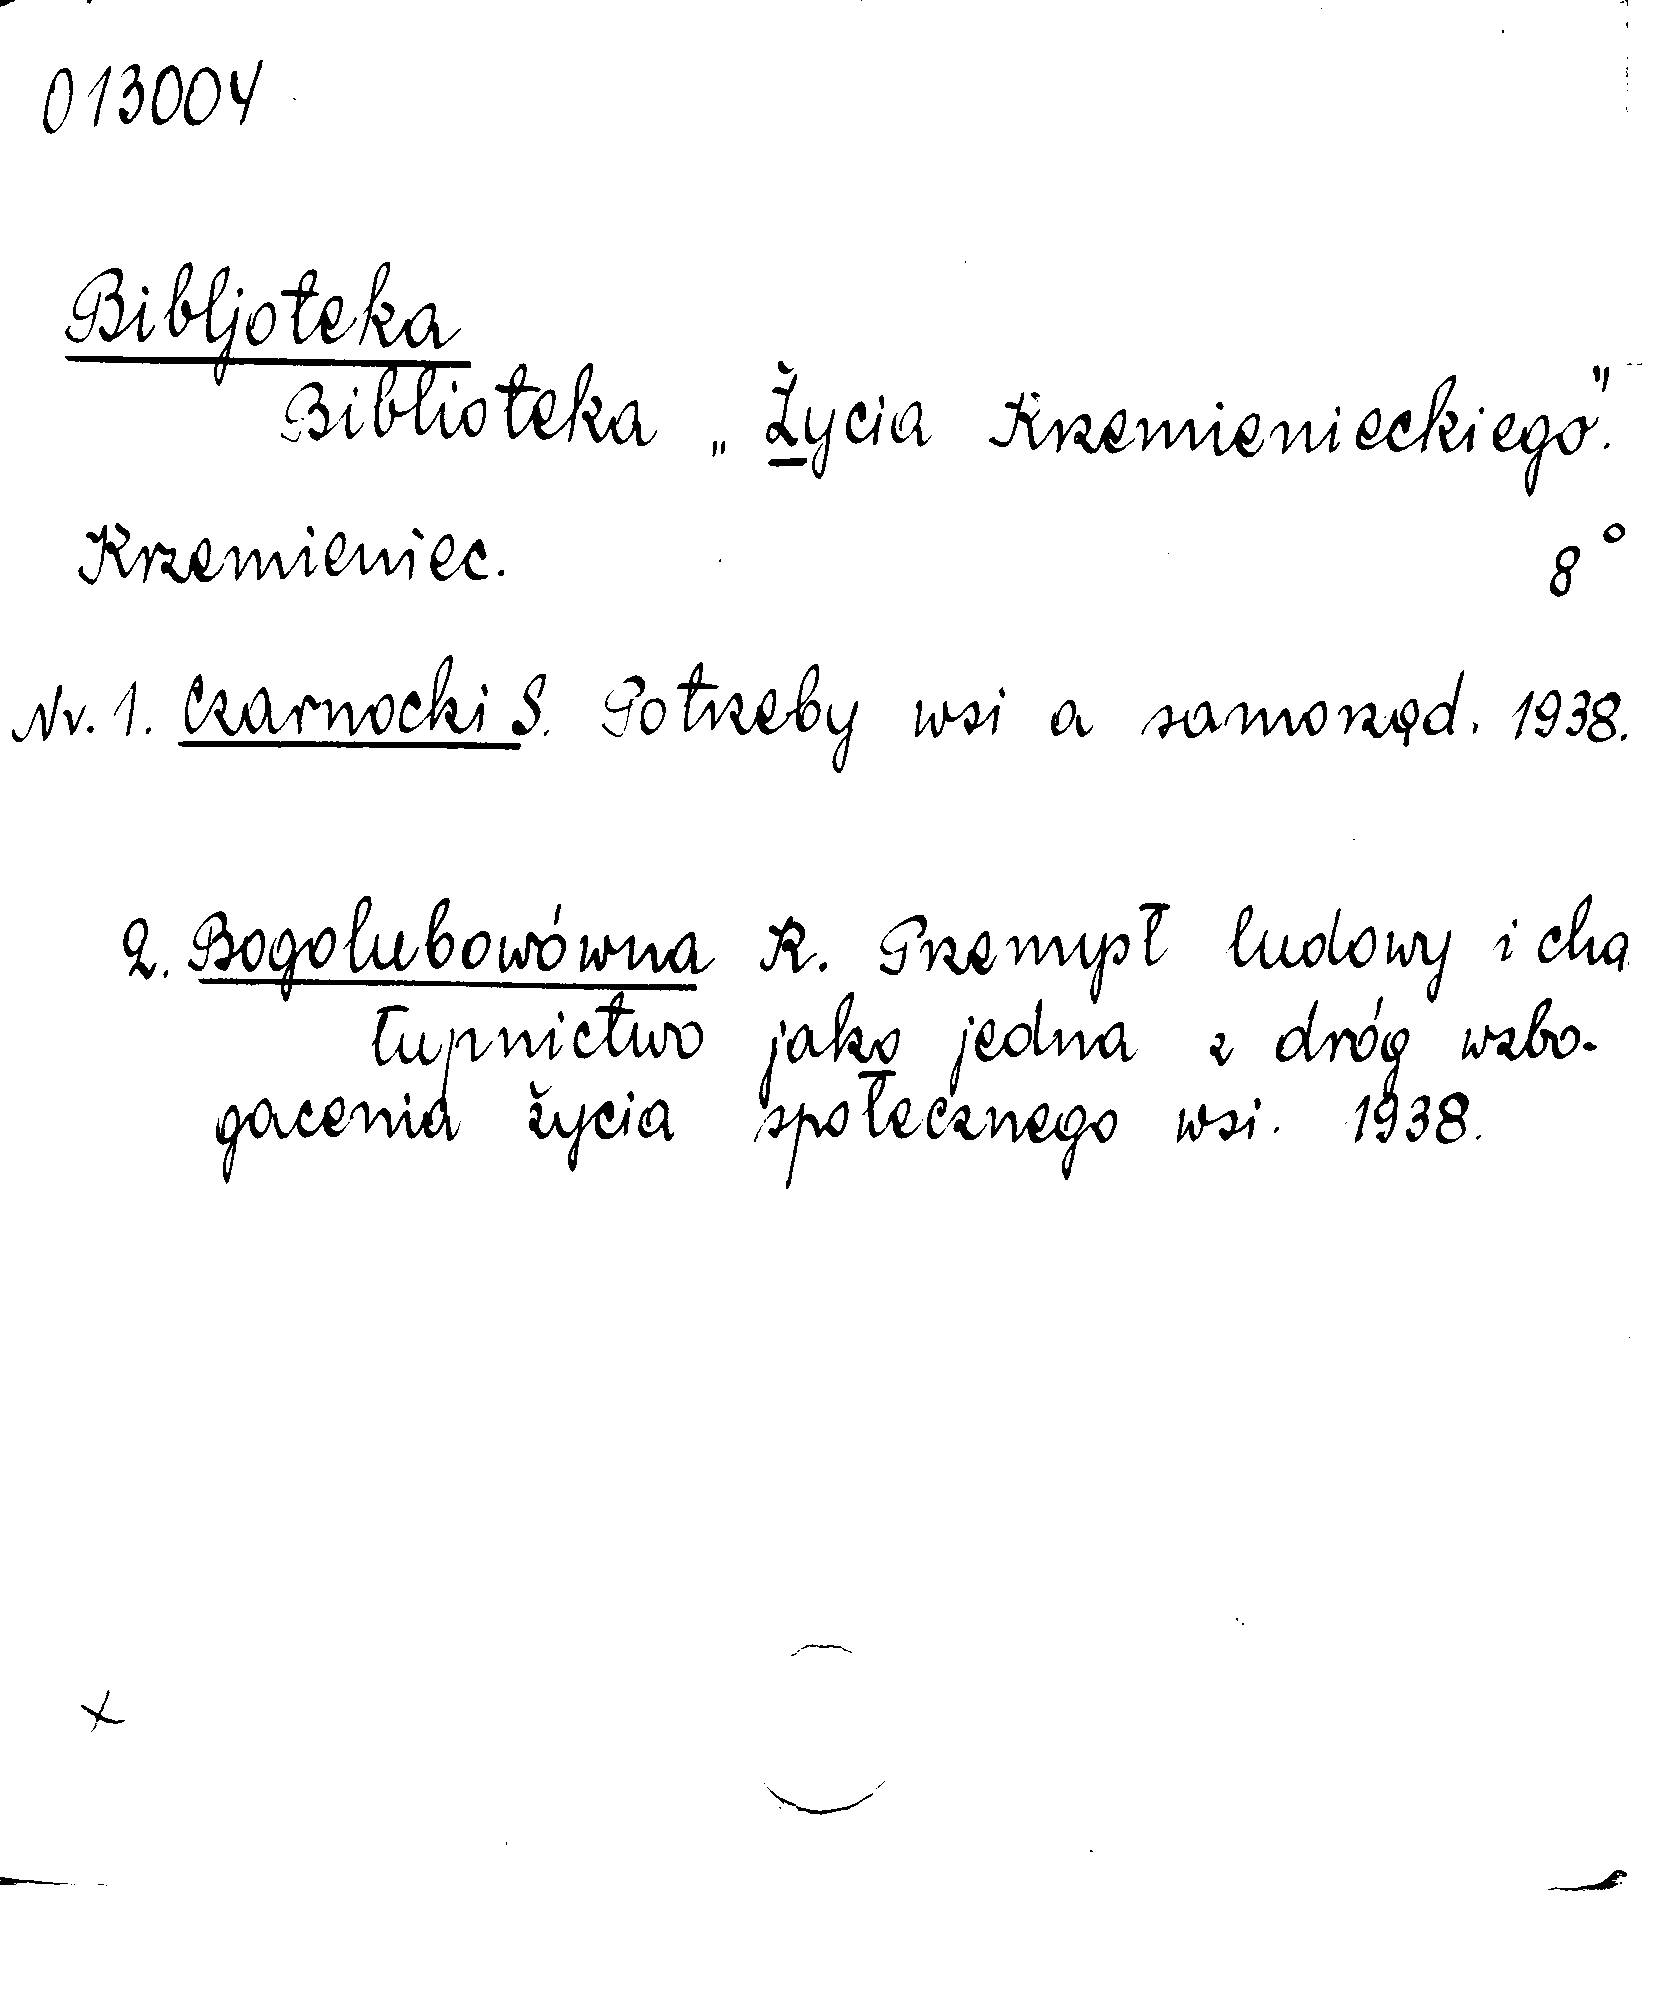 013004
Bibljoteka
Biblioteka „Życia Krzemienieckiego".
Krzemieniec. 8°
Nr. 1. Czarnocki S. Potrzeby wsi a samorząd. 1938.
2. Bogolubowówna K. Przemysł ludowy i cha
łupnictwo jako jedna z dróg wzbo-
gacenia życia społecznego wsi. 1938.
x